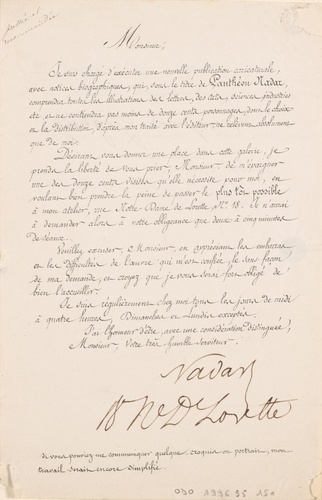 Monsieur,
Je suis chargé d'exécuter une nouvelle publication artistique,
avec notices biographiques, qui, sous le titre de Panthéon Nadar,
comprendra toutes les illustrations des lettres, des arts, sciences, industries
etc et ne contiendra pas moins de douze cents personnages, dont le choix
et la distribution, d'après mon traité avec l'éditeur, ne relèvent absolument
que de moi.
Désirant vous donner une place dans cette galerie, je
prends la liberté de vous prier, Monsieur, de m'épargner
une des douze cents visites qu'elle nécessite pour moi, en
voulant bien prendre la peine de passer le plus tôt possible
à mon atelier, rue Notre-Dame de Lorette No 18. Je n'aurai
à demander alors à votre obligeance que deux à cinq minutes
de séance.
Veuillez excuser, Monsieur, en appréciant les embarras
et les difficultés de l'œuvre qui m'est confiée, le sans façon
de ma demande, et croyez que je vous serai fort obligé de
bien l'accueillir.
Je suis régulièrement chez moi tous les jours de midi
à quatre heures, Dimanches et Lundis exceptés.
J'ai l'honneur d'être, avec une considération distinguée,
Monsieur, Votre très humble serviteur.
Nadar
18 N D Lorette
Si vous pouviez me communiquer quelque croquis ou portrait, mon
travail serait encore simplifié.
ODO 1996 35 150